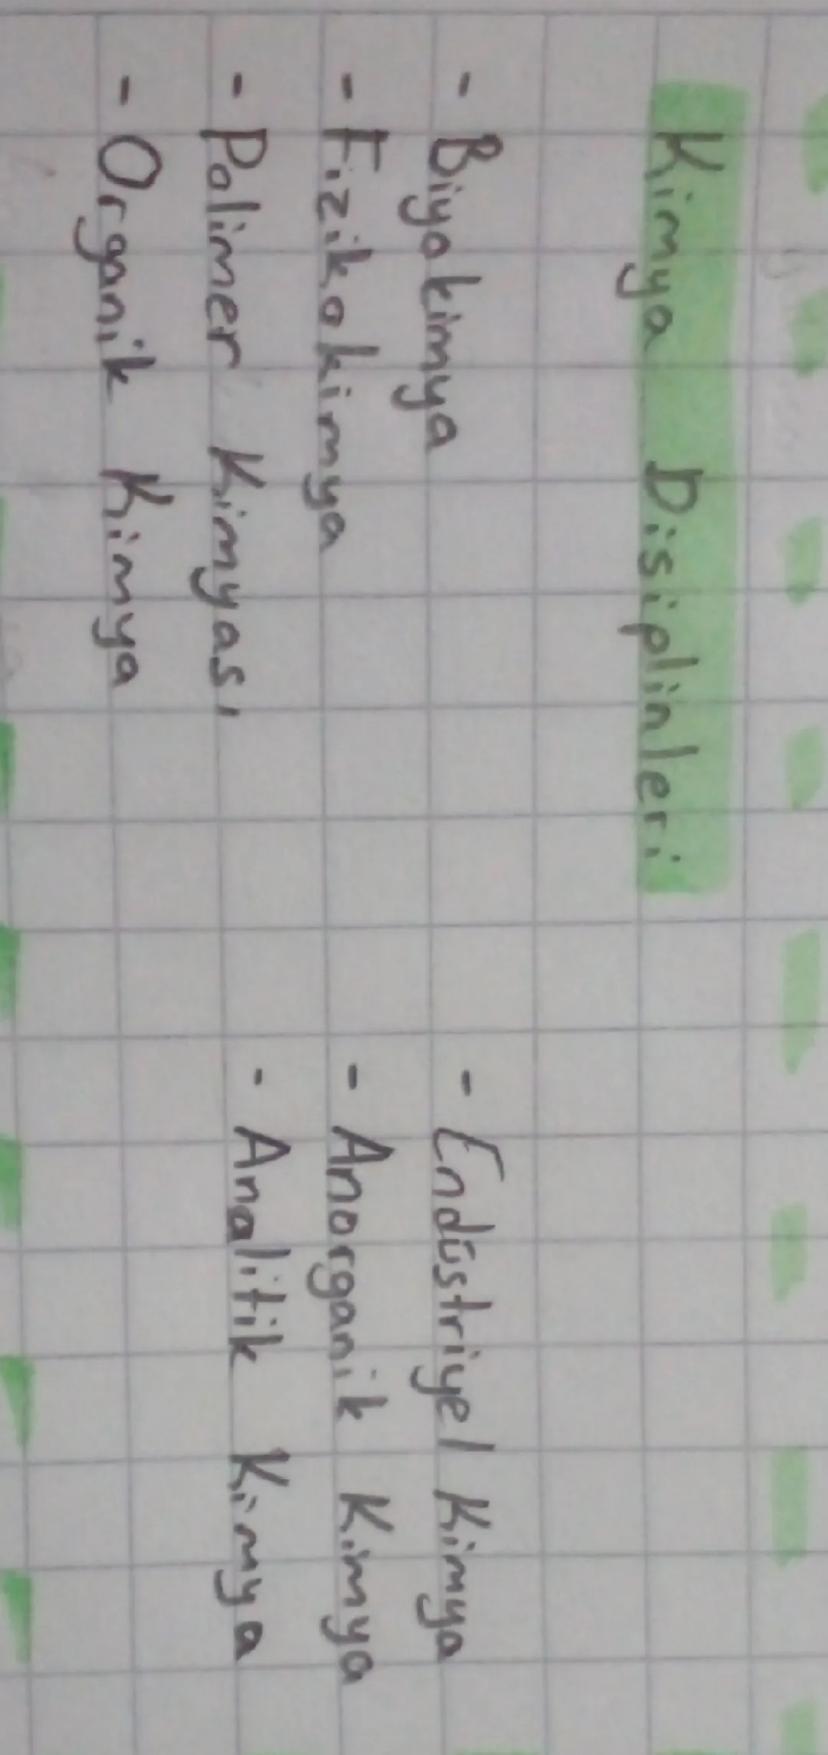 Kimya Disiplinleri
- Biyokimya
- Fizikokimya
- Polimer Kimyası
- Organik Kimya
- Endüstriyel Kimya
- Anorganik Kimya
- Analitik Kimya